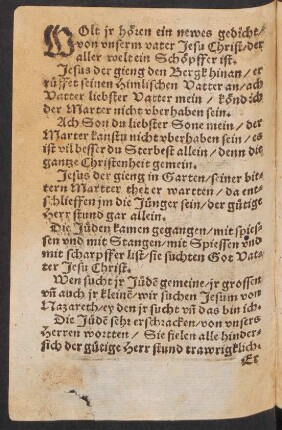 WOlt jr hören ein newes gedicht/
von vnserm vater Jesu Christ/ der
aller welt ein Schöpffer ist.
Jesus der gieng den Bergk hinan/ er
rüffet seinen Himlischen Vatter an/ ach
Vatter liebster Vatter mein/ könd ich
der Marter nicht vberhaben sein.
Ach Son du liebster Sone mein/ der
Marter kanstu nicht vberhaben sein/ es
ist vil besser du Sterbest allein/ denn die
gantze Christenheit gemein.
Jesus der gieng in Garten/ seiner bit-
tern Martter thet er wartten/ da ent-
schlieffen jm die Jünger sein/ der gütige
Herr stund gar allein.
Die Jüden kamen gegangen/ mit spies-
sen vnd mit Stangen/ mit Spiessen vnd
mit scharpffer list/ sie suchten Got Vat-
ter Jesu Christ.
Wen sucht jr Jüdē gemeine/ jr grossen
vñ auch jr kleinē/ wir suchen Jesum von
Nazareth/ ey den jr sucht vñ das bin ich.
Die Jüdē sehr erschracken/ von vnsers
Herren wortten/ Sie fielen alle hinder-
sich der gütige Herr stund trawrigklich.
Er